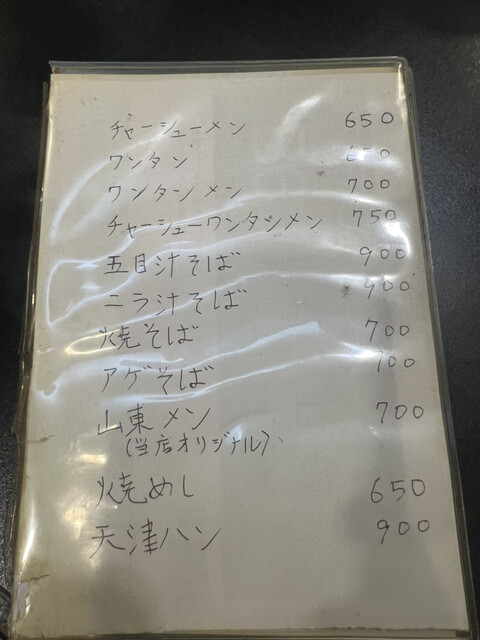 チャーシューメン 650
ワンタン 650
ワンタンメン 700
チャーシューワンタンメン 750
五目汁そば 900
ニラ汁そば 900
焼そば 700
アゲそば 700
山東メン 700
(当店オリジナル)
焼めし 650
天津ハン 900